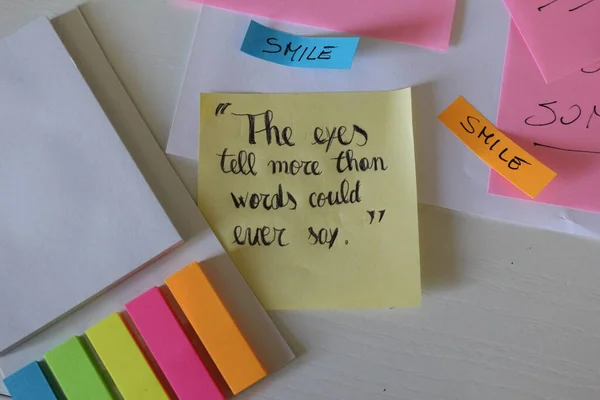 SMILE
"The eyes
tell more than
words could
ever say."
SMILE